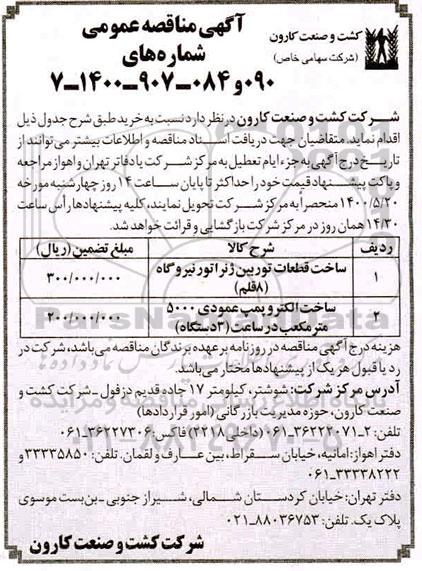 کشت و صنعت کارون
(شرکت سهامی خاص)
آگهی مناقصه عمومی
شماره‌های
۰۹۰ و ۰۸۴-۹۰۷-۱۴۰۰-۷
شرکت کشت و صنعت کارون در نظر دارد نسبت به خرید طبق شرح جدول ذیل
اقدام نماید. متقاضیان جهت دریافت اسناد مناقصه و اطلاعات بیشتر می‌توانند از
تاریخ درج آگهی به جزء ایام تعطیل به مرکز شرکت یا دفاتر تهران و اهواز مراجعه
و پاکت پیشنهاد قیمت خود را حداکثر تا پایان ساعت ۱۴ روز چهارشنبه مورخه
۱۴۰۰/۵/۲۰ منحصراً به مرکز شرکت تحویل نمایند، کلیه پیشنهادها رأس ساعت
۱۴/۳۰ همان روز در مرکز شرکت بازگشایی و قرائت خواهد شد.
ردیف شرح کالا مبلغ تضمین (ریال)
۱ ساخت قطعات توربین ژنراتور نیروگاه (۸ قلم) ۳۰۰/۰۰۰/۰۰۰
۲ ساخت الکتروپمپ عمودی ۵۰۰۰ مترمکعب در ساعت (۳ دستگاه) ۲۰۰/۰۰۰/۰۰۰
هزینه درج آگهی مناقصه در روزنامه بر عهده برندگان مناقصه می‌باشد، شرکت در
رد یا قبول هر یک از پیشنهادها مختار می‌باشد.
آدرس مرکز شرکت: شوشتر، کیلومتر ۱۷ جاده قدیم دزفول - شرکت کشت و
صنعت کارون، حوزه مدیریت بازرگانی (امور قراردادها)
تلفن: ۲-۳۶۲۲۲۰۷۱-۰۶۱ (داخلی ۲۲۱۷) فاکس: ۳۶۲۲۷۳۰۶-۰۶۱
دفتر اهواز: امانیه، خیابان سقراط، بین عارف و لقمان. تلفن: ۳۳۳۳۵۸۵۰ و
۳۳۳۳۸۲۲۲-۰۶۱
دفتر تهران: خیابان کردستان شمالی، شیراز جنوبی - بن‌بست موسوی
پلاک یک. تلفن: ۸۸۰۳۶۷۵۳-۰۲۱
شرکت کشت و صنعت کارون
ParsNamadData
۰۲۱-۸۸۳۴۹۶۷۰-۵